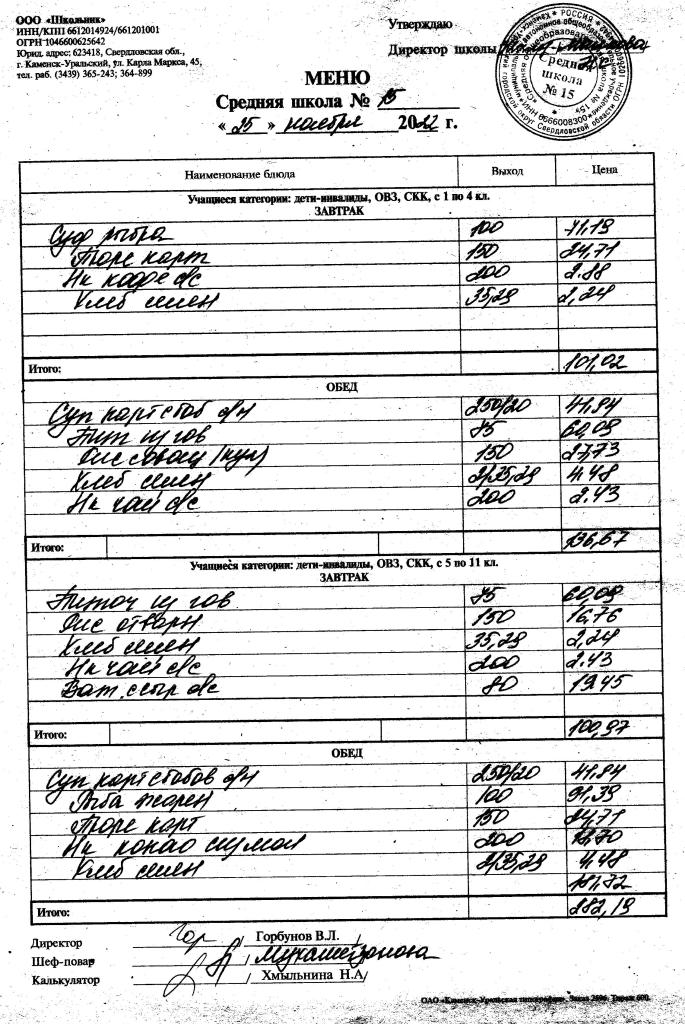 ООО «Школьник»
ИНН/КПП 6612014924/661201001
ОГРН 1046600625642
Юрид. адрес: 623418, Свердловская обл.,
г. Каменск-Уральский, ул. Карла Маркса, 45,
тел. раб. (3439) 365-243; 364-899
Утверждаю
Директор школы
Средняя
школа
№ 15
МЕНЮ
Средняя школа № 15
« 25 » ноября 2022 г.
Наименование блюда Выход Цена
Учащиеся категории: дети-инвалиды, ОВЗ, СКК, с 1 по 4 кл.
ЗАВТРАК
Суф рыба 100 71,19
Пюре карт 150 24,71
Нк кофе с/с 200 2.88
Хлеб пшен 35,29 2,24
Итого: 101,02
ОБЕД
Суп карт с боб с/м 250/20 41.94
75 60,09
150 27,73
Хлеб пшен 2/35,29 4.48
Нк чай с/с 200 2.43
Итого: 136,67
Учащиеся категории: дети-инвалиды, ОВЗ, СКК, с 5 по 11 кл.
ЗАВТРАК
75 60.09
Рис отварн 150 16,76
Хлеб пшен 35,29 2,24
Нк чай с/с 200 2.43
Ват. с сыр с/с 80 19.45
Итого: 100,97
ОБЕД
Суп карт с бобов с/м 250/20 41.94
Рыба жарен 100 91,39
Пюре карт 150 24,71
Нк какао с цумол 200
Хлеб пшен 2/35,29 4,48
181,72
Итого: 282,19
Директор / Горбунов В.Л. /
Шеф-повар
Калькулятор / Хмыльнина Н.А /
ОАО «Каменск-Уральская типография».